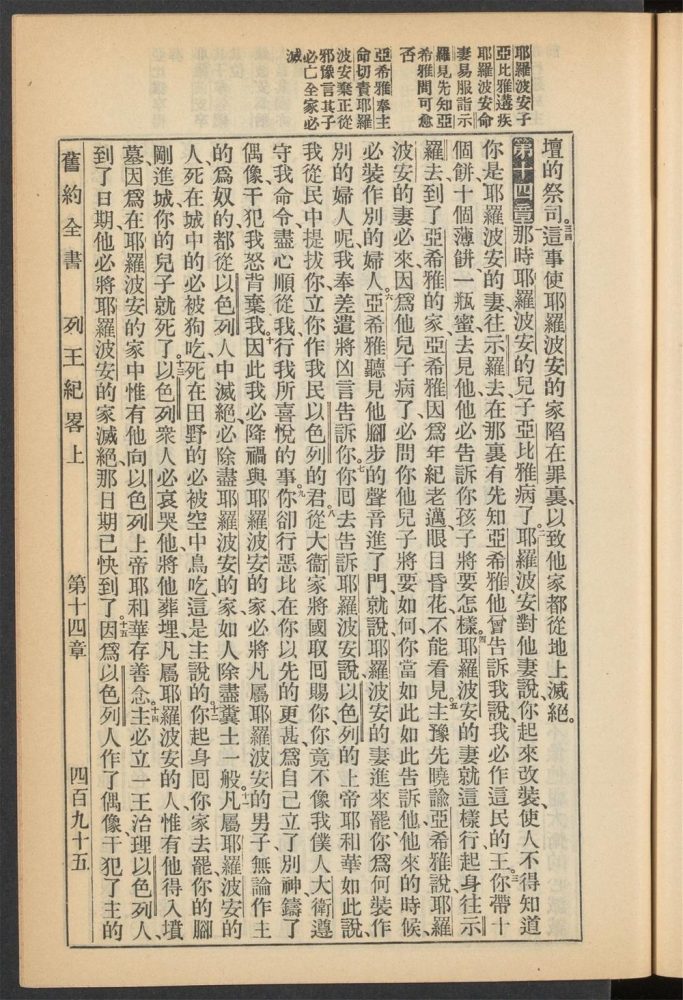 耶羅波安子
亞比雅遘疾
耶羅波安命
妻易服詣示
羅見先知亞
希雅問可愈
否
亞希雅奉主
命切責耶羅
波安棄正從
邪豫言其子
必亡全家必
滅
壇的祭司。三四這事使耶羅波安的家陷在罪裏、以致他家都從地上滅絕。
第十四章一那時耶羅波安的兒子亞比雅病了。二耶羅波安對他妻說、你起來改裝、使人不得知道
你是耶羅波安的妻、往示羅去、在那裏有先知亞希雅、他曾告訴我說、我必作這民的王。三你帶十
個餅、十個薄餅、一瓶蜜、去見他、他必告訴你孩子將要怎樣。四耶羅波安的妻就這樣行、起身往示
羅去、到了亞希雅的家、亞希雅因爲年紀老邁、眼目昏花、不能看見。五主豫先曉諭亞希雅說、耶羅
波安的妻必來、因爲他兒子病了、必問你他兒子將要如何、你當如此如此告訴他、他來的時候、
必裝作別的婦人。六亞希雅聽見他腳步的聲音進了門、就說、耶羅波安的妻進來罷、你爲何裝作
別的婦人呢、我奉差遣將凶言告訴你。七你回去告訴耶羅波安說、以色列的上帝耶和華如此說、
我從民中提拔你、立你作我民以色列的君。八從大衞家將國取回賜你、你竟不像我僕人大衞遵
守我命令、盡心順從我、行我所喜悅的事。九你卻行惡、比在你以先的更甚、爲自己立了別神、鑄了
偶像、干犯我怒、背棄我。十因此我必降禍與耶羅波安的家、必將凡屬耶羅波安的男子、無論作主
的爲奴的、都從以色列人中滅絕、必除盡耶羅波安的家、如人除盡糞土一般。十一凡屬耶羅波安的
人、死在城中的必被狗吃、死在田野的必被空中鳥吃、這是主說的。十二你起身回你家去罷、你的腳
剛進城、你的兒子就死了。十三以色列衆人必哀哭他、將他葬埋、凡屬耶羅波安的人、惟有他得入墳
墓、因爲在耶羅波安的家中、惟有他向以色列上帝耶和華存善念。十四主必立一王治理以色列人、
到了日期、他必將耶羅波安的家滅絕、那日期已快到了。十五因爲以色列人作了偶像、干犯了主的
舊約全書 列王紀畧上 第十四章 四百九十五